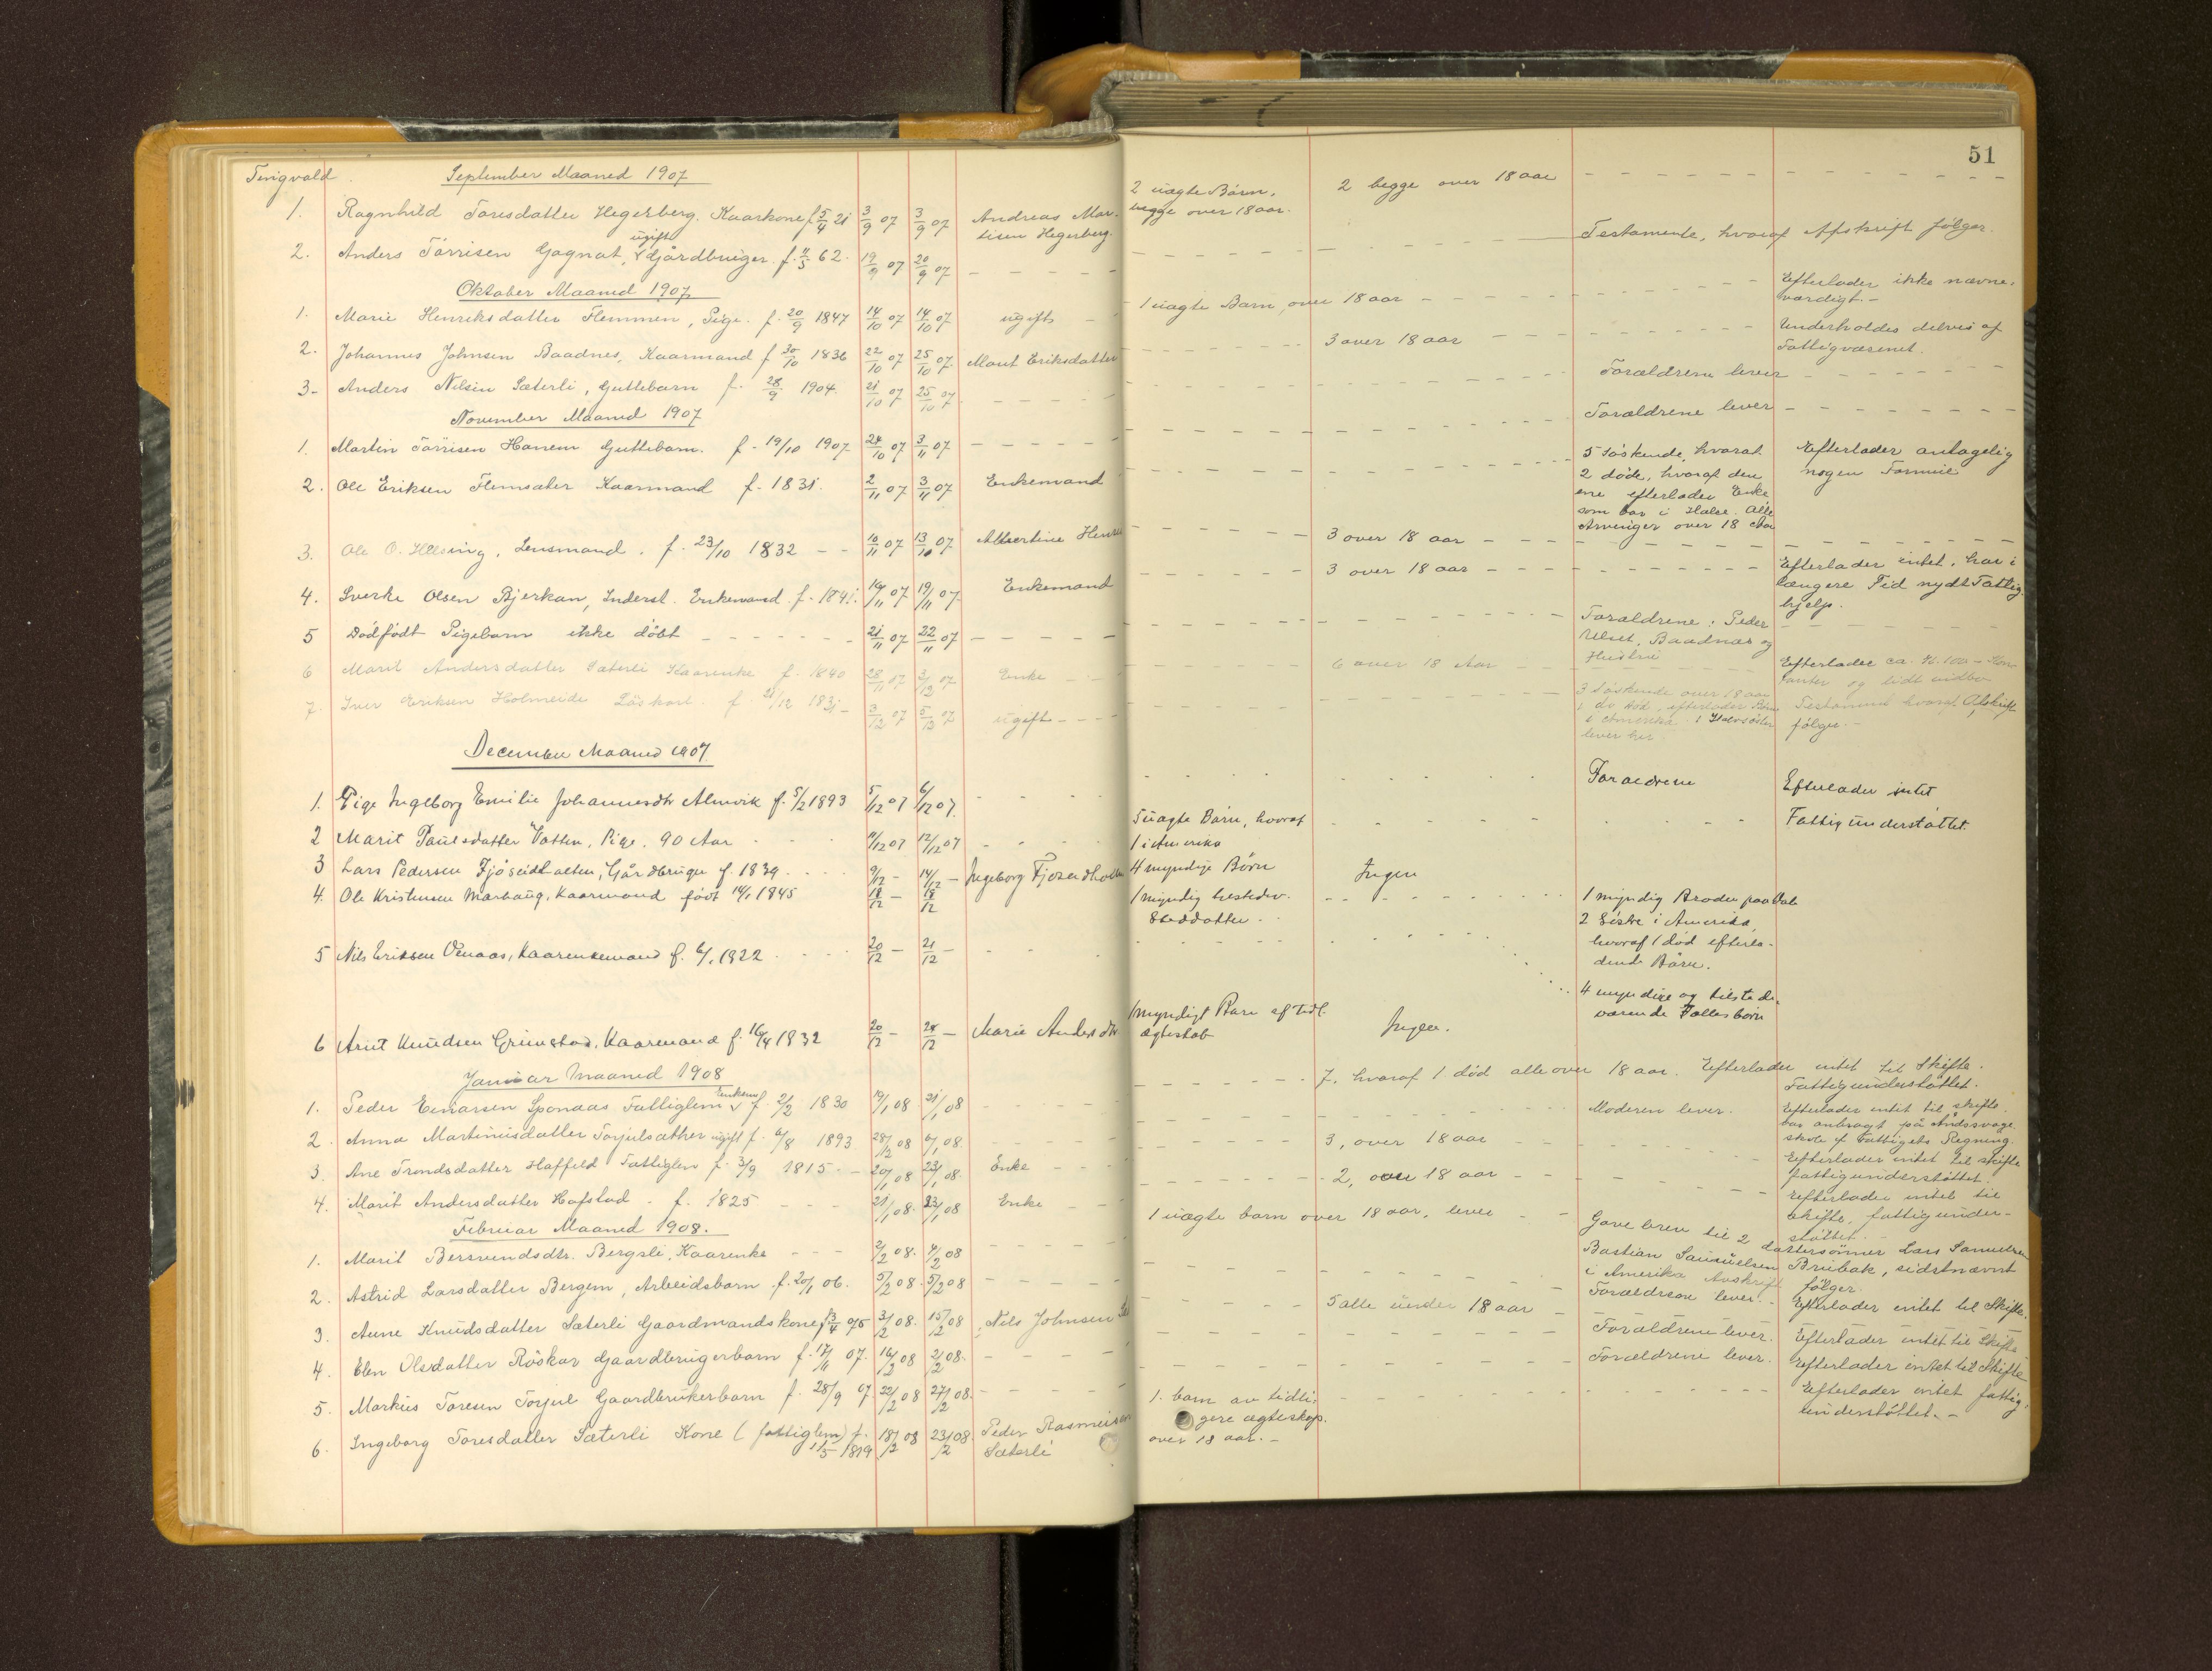 51
Tingvold. September Maaned 1907
1. Ragnhild Toresdatter Hegerberg. Kaarkone f 5/4 21 3/9 07 3/9 07 Andreas Mar-
tisen Hegerberg. 2 uægte Børn,
begge over 18 aar. 2 begge over 18 aar
2. Anders Tørrisen Gagnat, ugift Gårdbruger. f. 62. 19/9 07 20/9 07 Testamente, hvoraf Afskrift følger.
Oktober Maaned 1907
1. Marie Henriksdatter Flemmen, Pige. f. 20/9 1847 14/10 07 14/10 07 ugift 1 uægte Barn, over 18 aar Efterlader ikke nævne-
værdigt.-
2. Johannes Johnsen Baadnes, Kaarmand f 30/10 1836 22/10 07 25/10 07. Marit Eriksdatter 3 over 18 aar Underholdes delvis af
Fattigvæsenet.
3- Anders Nilsen Sæterli, Guttebarn f. 28/9 1904. 21/10 07 25/10 07. Forældrene lever
November Maaned 1907
1. Martin Tørrisen Hanem Guttebarn. f - 19/10 1907 24/10 07 3/11 07 Forældrene lever
2. Ole Eriksen Flemsæter Kaarmand f. 1831. 2/11 07 3/11 07 Enkemand 5 Søskende, hvoraf Efterlader antagelig
2 døde, hvoraf den nogen Formue
ene efterlader Enke
som bor i Halse. Alle
Arvinger over 18 Aar
3. Ole O. Helsing, Lensmand. f. 23/10 1832 - - 10/11 07 13/10 07 Albertine 3 over 18 aar
4. Sverke Olsen Bjerkan, Inderst. Enkemand. f. 1841. 16/11 07 19/11 07 Enkemand 3 over 18 aar Efterlader intet, har i
længere Tid nydt Fattig-
hjelp.
5 Dødfødt Pigebarn ikke døbt 21/11 07 22/11 07 Forældrene: Peder
Ulset, Baadnes og
Hustru
6 Marit Andersdatter Sæterli Kaarenke f. 1840 28/11 07 3/12 07 Enke 6 over 18 Aar Efterlader ca. Kr. 100 - Kon-
tanter og lidt indbo
7. Iver Eriksen Holmeide Løskart. f 21/12 1831 - 3/12 07 5/12 07 ugift 3 Søskende over 18 aar
1 do død, efterlader Børn Testament hvoraf Afskrift
i Amerika. 1 Halvsøster følger.-
lever her
December Maaned 1907
1. Pige Ingeborg Emilie Johannesdtr Almvik f. 5/2 1893 5/12 07 6/12 07. Foraldrene Efterlader intet
2 Marit Paulsdatter Vatten, Pige, 90 Aar 11/12 07 12/12 07 5 uægte Børn, hvoraf
1 i Amerika Fattigunderstøttet.
3 Lars Pedersen Fjøseidhalten, Gårdbruger f. 1839 9/12 - 14/12 - Ingeborg 4 myndige Børn Ingen
4. Ole Kristensen Marhaug, Kaarmand født 14/1 1845 18/12 - 18/12 1 myndig
Steddatter 1 myndig Broder paa
2 Søstre i Amerika,
hvoraf 1 død efterla-
dende Børn.
5 Nils Eriksen Venaas, Kaarenkemand f. 6/1 1822 20/12 - 21/12 - 4 myndige og tilstede-
værende Fællesbørn
6 Arnt Knudsen Grimstad, Kaarmand f. 16/4 1832 20/12 - 24/12 - Marie Andersdtr 1 myndigt Barn af tidl.
ægteskab Ingen.
Januar Maaned 1908
1. Peder Einarsen Sponaas Fattiglem Enkem f. 2/2 1830 19/1 08 21/1 08 7, hvoraf 1 død alle over 18 aar. Efterlader intet til Skifte.
Fattigunderstøttet.
2. Anna Martinusdatter Torjulsæther ugift f. 6/8 1893. 28/12 08 6/1 08. Moderen lever. Efterlader intet til skifte.
var anbragt på Åndssvage-
skole f Fattiges Regning.
3. Ane Trondsdatter Haffeld Fattiglem f. 3/9 1815. - 20/1 08 23/1 08. Enke 3, over 18 aar Efterlader intet til skifte
fattigunderstøttet.
4. Marit Andersdatter Hafstad. f. 1825 21/1 08. 23/1 08 Enke 2, over 18 aar Efterlader intet til
skifte, fattigunder-
støttet.
Februar Maaned 1908.
1. Marit Bersvendsdtr. Bergsli, Kaarenke 2/2 08. 4/2 08 1 uægte barn over 18 aar, lever Gavebrev til 2 dattersønner Lars Samuelsen
Bastian Samuelsen Brubak, sidstnævnt
i Amerika Avskrift følger.
2. Astrid Larsdatter Bergem, Arbeidsbarn f. 20/1 06. 5/2 08. 5/2 08 Forældrene lever. Efterlader intet til Skifte.
3. Anne Knudsdatter Sæterli Gaardmandskone 3/2 08. 15/2 08 Nils Johnsen 5 alle under 18 aar
4. Elen Olsdatter Röskar Gaardbrugerbarn f. 17/11 07. 16/2 08 2/2 08. Forældrene lever. Efterlader intet til Skifte
5. Markus Toresen Torjul Gaardbrukerbarn f. 28/9 07 22/2 08 27/2 08. Forældrene lever. Efterlader intet til Skifte
6. Ingeborg Toresdatter Sæterli Kone (fattiglem) f.
11/5 1819 18/2 08 23/2 08. Peder Rasmusen
Sæterli 1. barn av tidli-
gere ægteskap.
over 18 aar.- Efterlader intet fattig-
understøttet.-